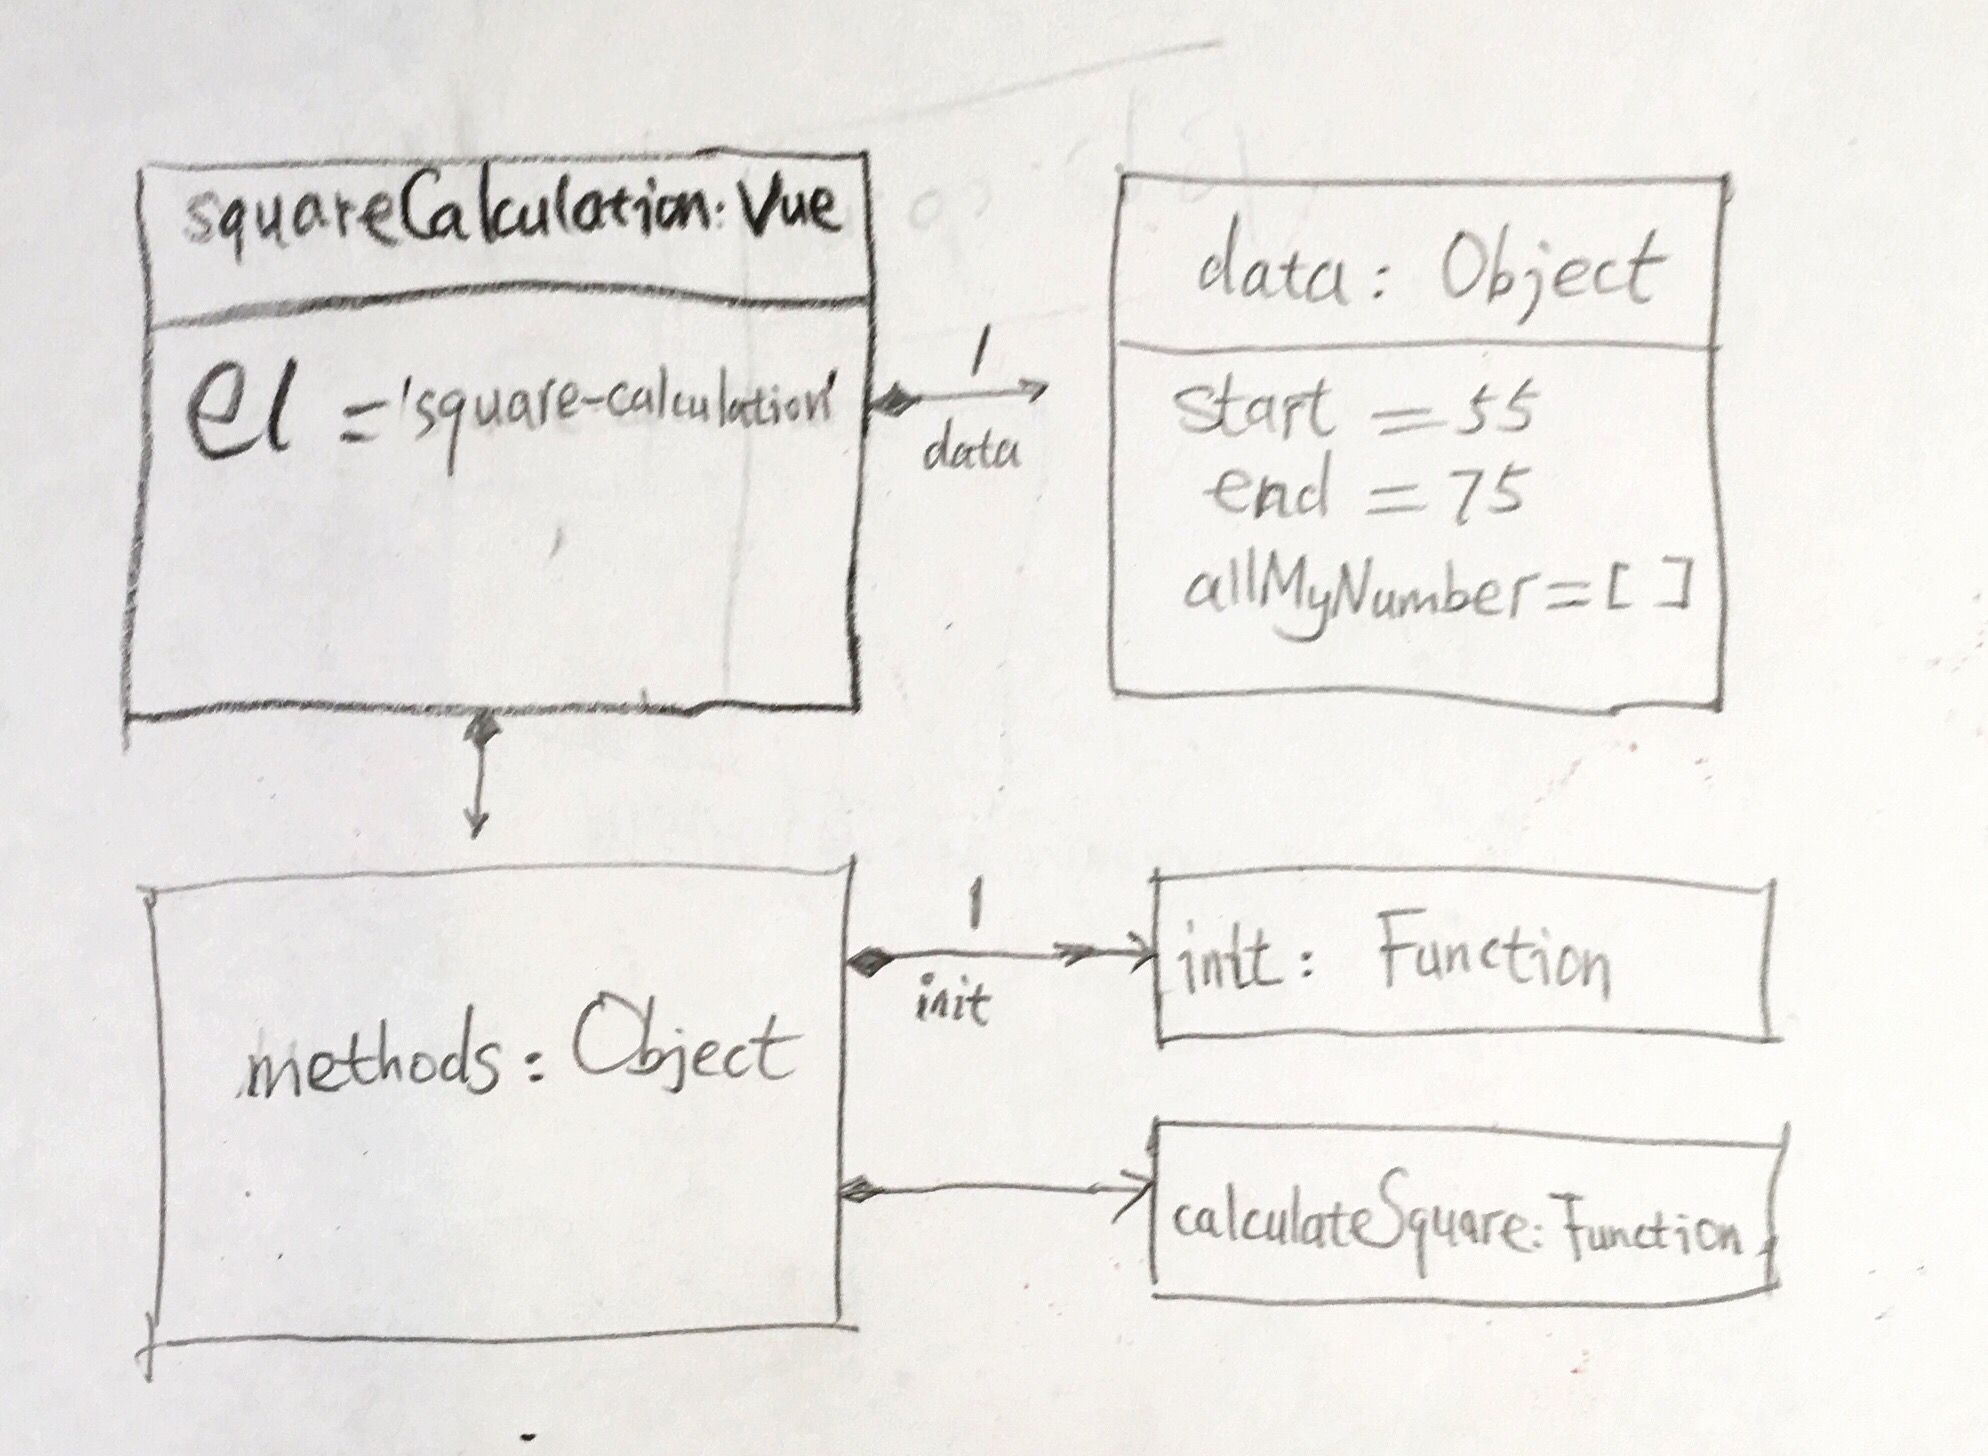 squareCalculation: Vue
el = 'square-calculation'
1
data
data: Object
start = 55
end = 75
allMyNumber = [ ]
methods: Object
1
init
init: Function
calculateSquare: Function